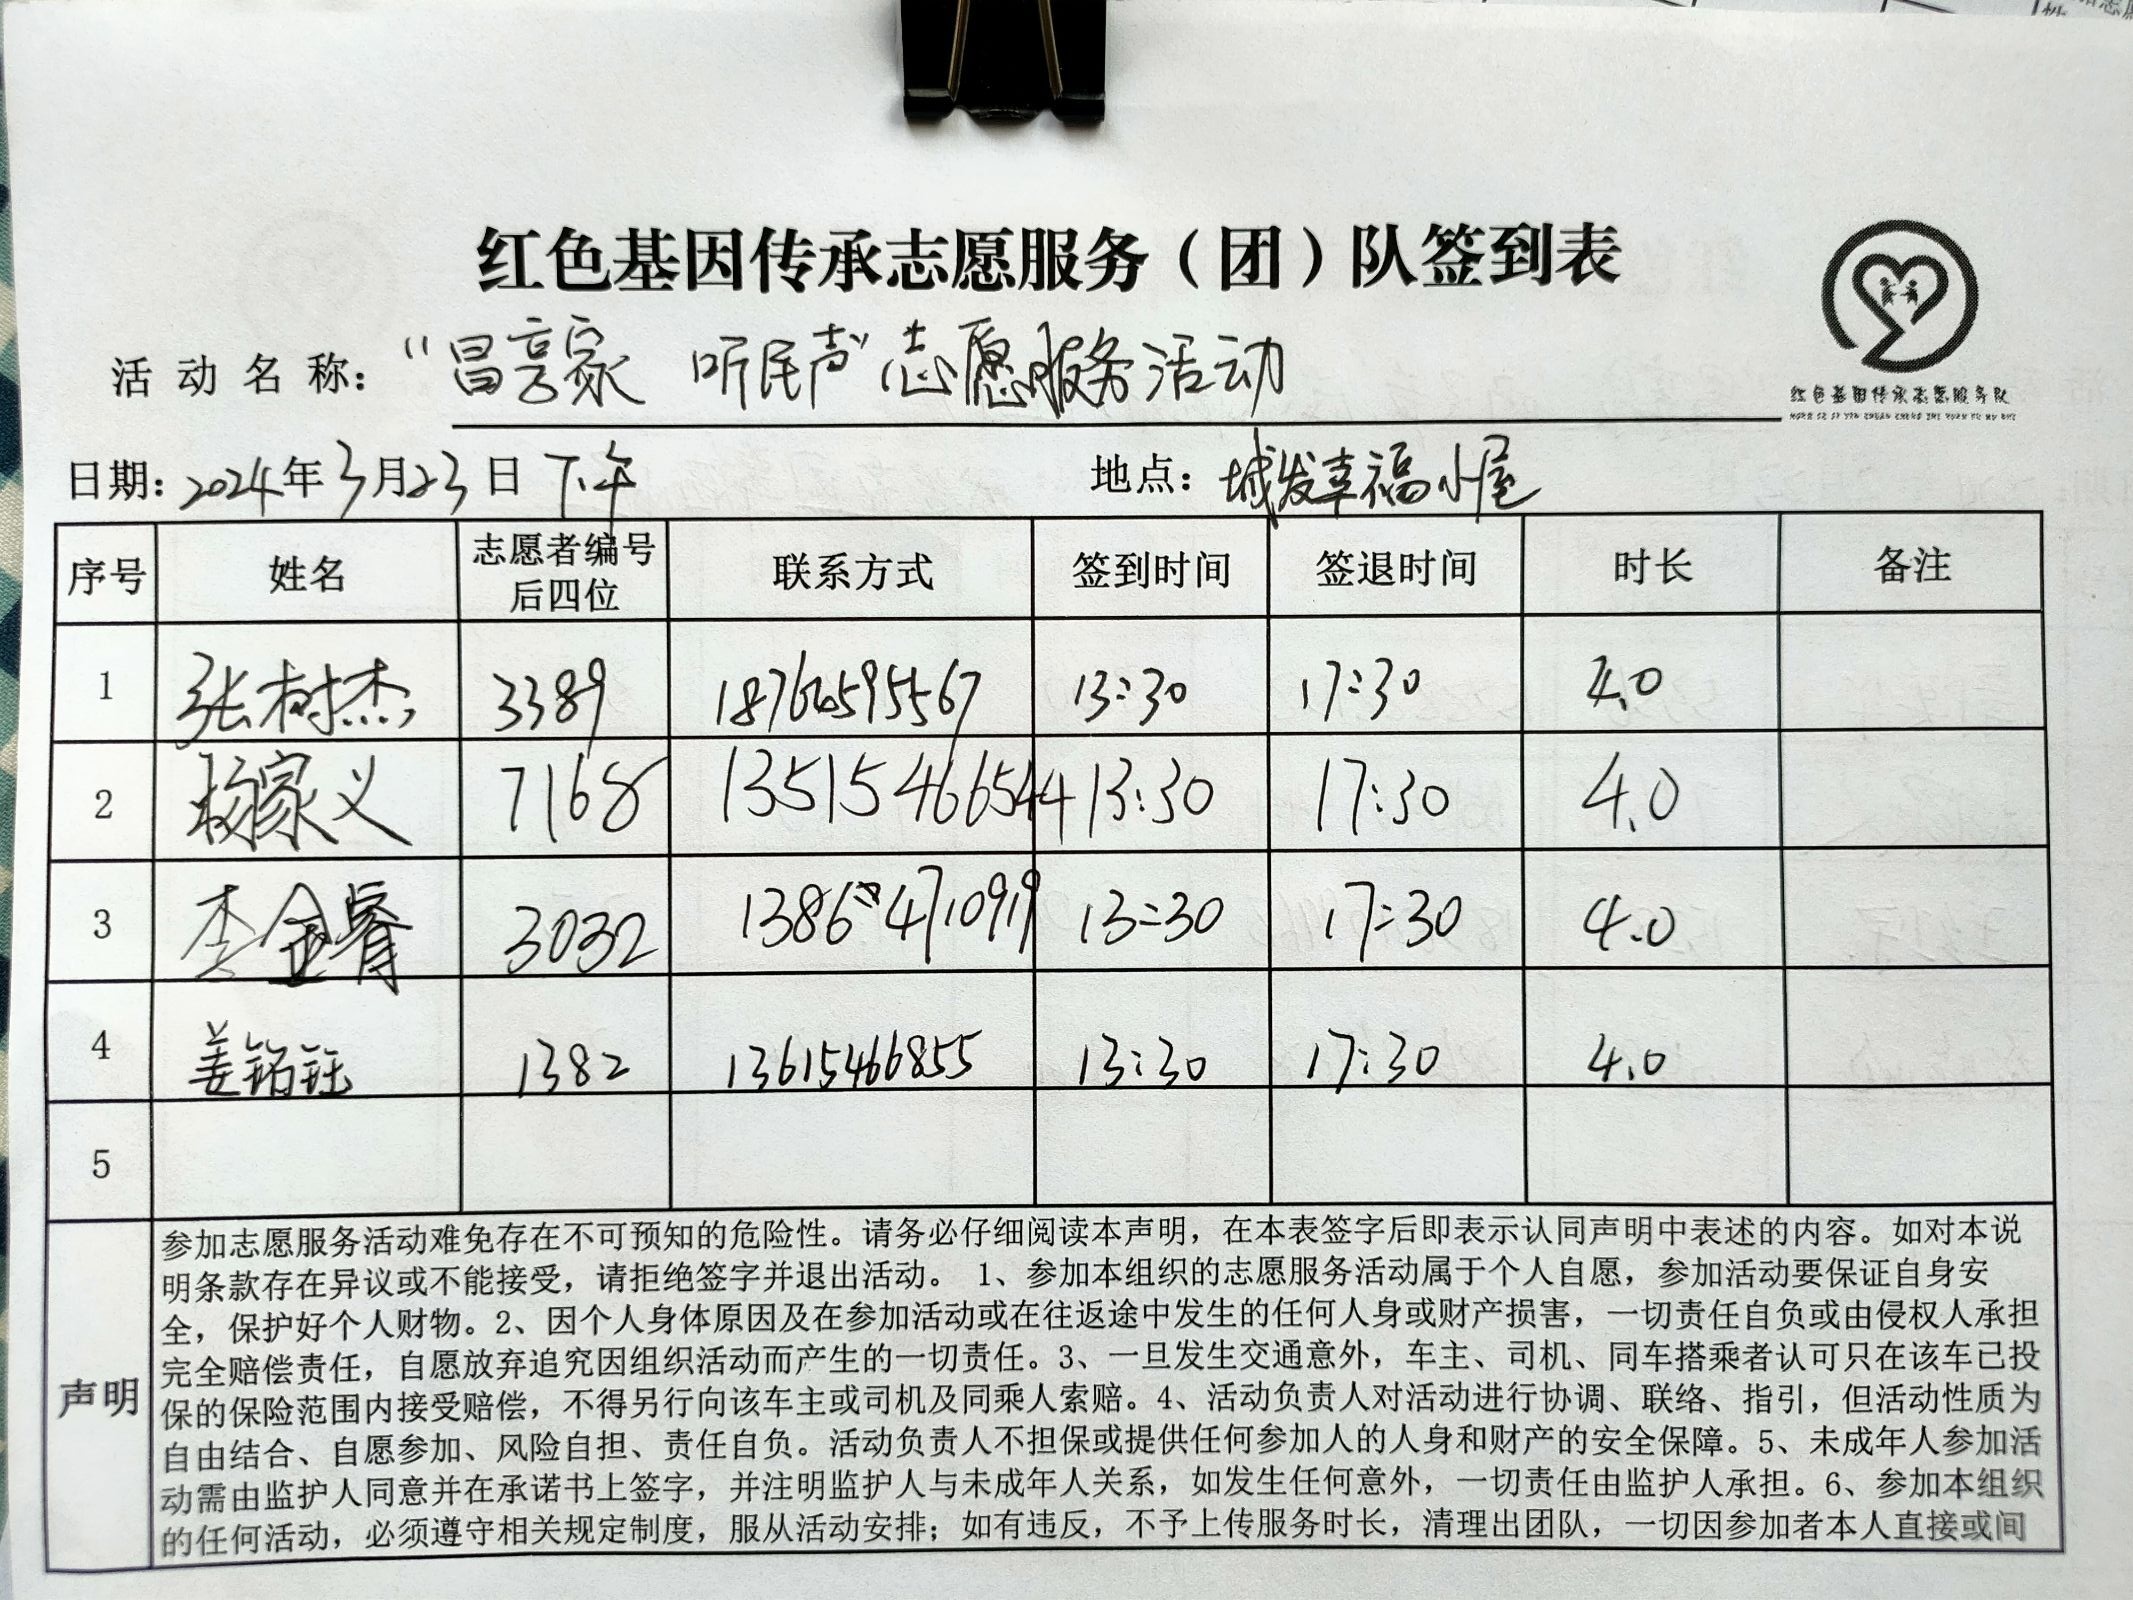 红色基因传承志愿服务（团）队签到表
红色基因传承志愿服务队
活动名称：“昌亮家 听民声”志愿服务活动
日期：2024年3月23日 下午 地点：城发幸福小屋
序号 姓名 志愿者编号后四位 联系方式 签到时间 签退时间 时长 备注
1 张树杰 3389 18764595567 13:30 17:30 4.0
2 杨家义 7168 13515466544 13:30 17:30 4.0
3 李金睿 3032 13864710919 13:30 17:30 4.0
4 姜铭钰 1382 13615466855 13:30 17:30 4.0
5
声明
参加志愿服务活动难免存在不可预知的危险性。请务必仔细阅读本声明，在本表签字后即表示认同声明中表述的内容。如对本说
明条款存在异议或不能接受，请拒绝签字并退出活动。 1、参加本组织的志愿服务活动属于个人自愿，参加活动要保证自身安
全，保护好个人财物。2、因个人身体原因及在参加活动或在往返途中发生的任何人身或财产损害，一切责任自负或由侵权人承担
完全赔偿责任，自愿放弃追究因组织活动而产生的一切责任。3、一旦发生交通意外，车主、司机、同车搭乘者认可只在该车已投
保的保险范围内接受赔偿，不得另行向该车主或司机及同乘人索赔。4、活动负责人对活动进行协调、联络、指引，但活动性质为
自由结合、自愿参加、风险自担、责任自负。活动负责人不担保或提供任何参加人的人身和财产的安全保障。5、未成年人参加活
动需由监护人同意并在承诺书上签字，并注明监护人与未成年人关系，如发生任何意外，一切责任由监护人承担。6、参加本组织
的任何活动，必须遵守相关规定制度，服从活动安排；如有违反，不予上传服务时长，清理出团队，一切因参加者本人直接或间